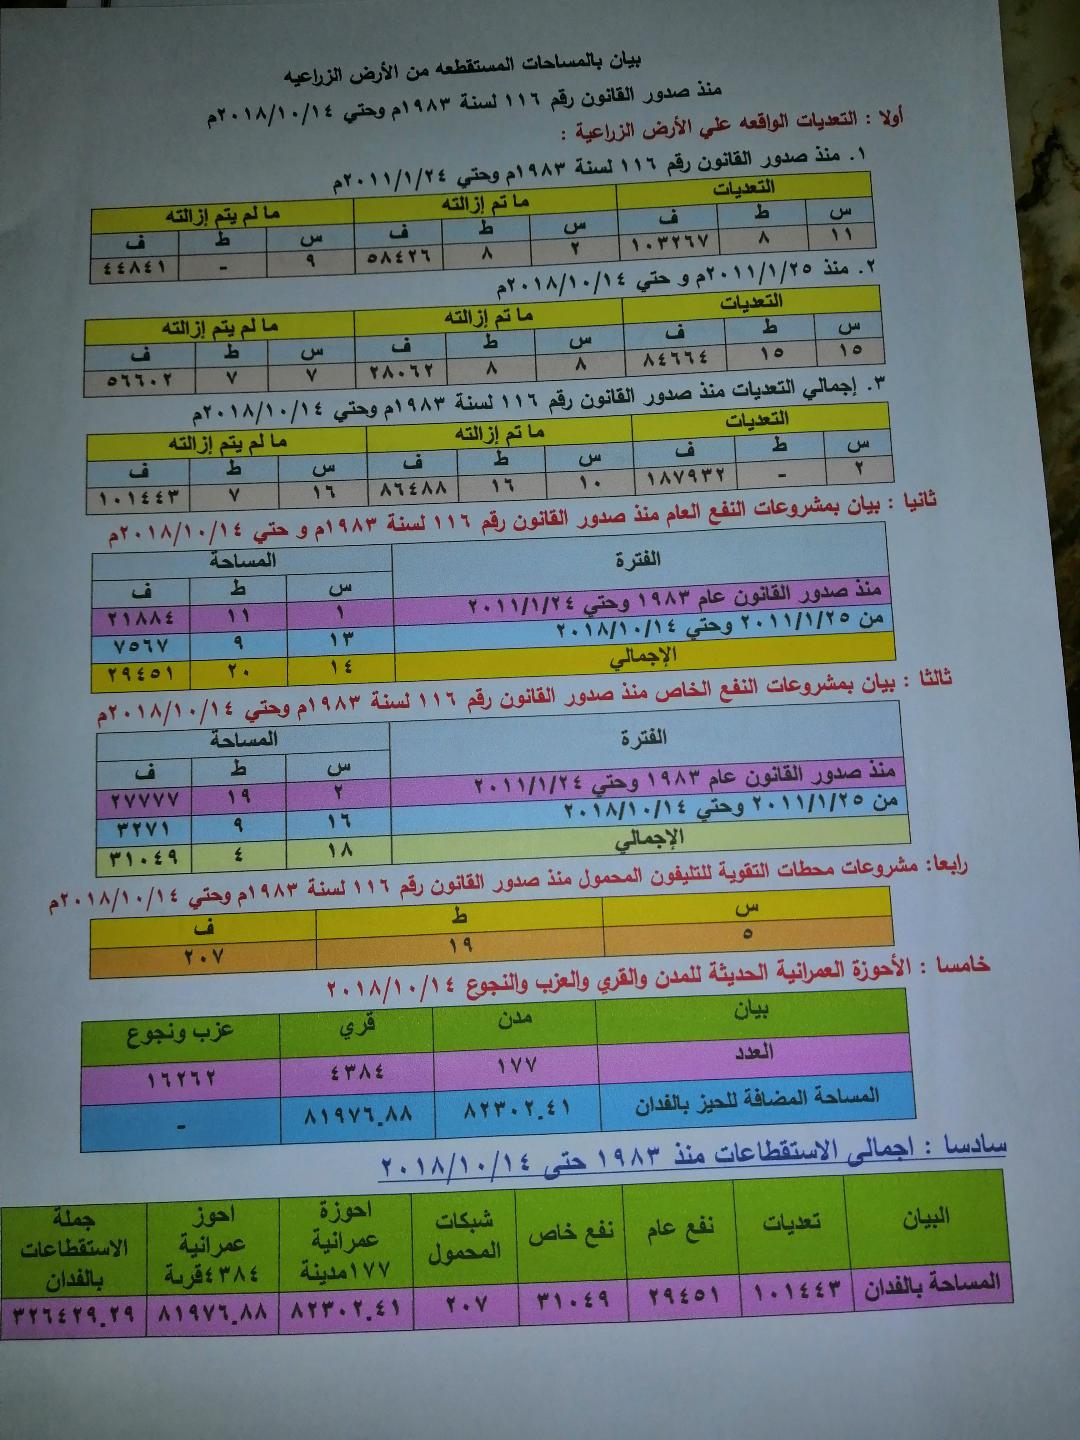 بيان بالمساحات المستقطعه من الأرض الزراعيه
منذ صدور القانون رقم ١١٦ لسنة ١٩٨٣م وحتي ٢٠١٨/١٠/١٤م
أولا : التعديات الواقعه علي الأرض الزراعية :
١. منذ صدور القانون رقم ١١٦ لسنة ١٩٨٣م وحتي ٢٠١١/١/٢٤م
التعديات ما تم إزالته ما لم يتم إزالته
س ط ف س ط ف س ط ف
١١ ٨ ١٠٣٢٦٧ ٢ ٨ ٥٨٤٢٦ ٩ - ٤٤٨٤١
٢. منذ ٢٠١١/١/٢٥م و حتي ٢٠١٨/١٠/١٤م
التعديات ما تم إزالته ما لم يتم إزالته
س ط ف س ط ف س ط ف
١٥ ١٥ ٨٤٦٦٤ ٨ ٨ ٢٨٠٦٢ ٧ ٧ ٥٦٦٠٢
٣. إجمالي التعديات منذ صدور القانون رقم ١١٦ لسنة ١٩٨٣م وحتي ٢٠١٨/١٠/١٤م
التعديات ما تم إزالته ما لم يتم إزالته
س ط ف س ط ف س ط ف
٢ - ١٨٧٩٣٢ ١٠ ١٦ ٨٦٤٨٨ ١٦ ٧ ١٠١٤٤٣
ثانيا : بيان بمشروعات النفع العام منذ صدور القانون رقم ١١٦ لسنة ١٩٨٣م و حتي ٢٠١٨/١٠/١٤م
الفترة المساحة
س ط ف
منذ صدور القانون عام ١٩٨٣ وحتي ٢٠١١/١/٢٤ ١ ١١ ٢١٨٨٤
من ٢٠١١/١/٢٥ وحتي ٢٠١٨/١٠/١٤ ١٣ ٩ ٧٥٦٧
الإجمالي ١٤ ٢٠ ٢٩٤٥١
ثالثا : بيان بمشروعات النفع الخاص منذ صدور القانون رقم ١١٦ لسنة ١٩٨٣م وحتي ٢٠١٨/١٠/١٤م
الفترة المساحة
س ط ف
منذ صدور القانون عام ١٩٨٣ وحتي ٢٠١١/١/٢٤ ٢ ١٩ ٢٧٧٧٧
من ٢٠١١/١/٢٥ وحتي ٢٠١٨/١٠/١٤ ١٦ ٩ ٣٢٧١
الإجمالي ١٨ ٤ ٣١٠٤٩
رابعا: مشروعات محطات التقوية للتليفون المحمول منذ صدور القانون رقم ١١٦ لسنة ١٩٨٣م وحتي ٢٠١٨/١٠/١٤م
س ط ف
٥ ١٩ ٢٠٧
خامسا : الأحوزة العمرانية الحديثة للمدن والقري والعزب والنجوع ٢٠١٨/١٠/١٤
بيان مدن قري عزب ونجوع
العدد ١٧٧ ٤٣٨٤ ١٦٢٦٢
المساحة المضافة للحيز بالفدان ٨٢٣٠٢.٤١ ٨١٩٧٦.٨٨ -
سادسا : اجمالى الاستقطاعات منذ ١٩٨٣ حتى ٢٠١٨/١٠/١٤
البيان تعديات نفع عام نفع خاص شبكات المحمول احوزة عمرانية ١٧٧مدينة احوز عمرانية ٤٣٨٤قرية جملة الاستقطاعات بالفدان
المساحة بالفدان ١٠١٤٤٣ ٢٩٤٥١ ٣١٠٤٩ ٢٠٧ ٨٢٣٠٢.٤١ ٨١٩٧٦.٨٨ ٣٢٦٤٢٩.٢٩